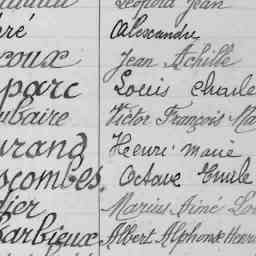 Léopold Jean
ré Alexandre
roux Jean Achille
parc Louis Charle
ubaire Victor François Ma
urand Henri Marie
scombes Octave Emile
dier Marius Aimé Lou
Barbieux Albert Alphonse Henri